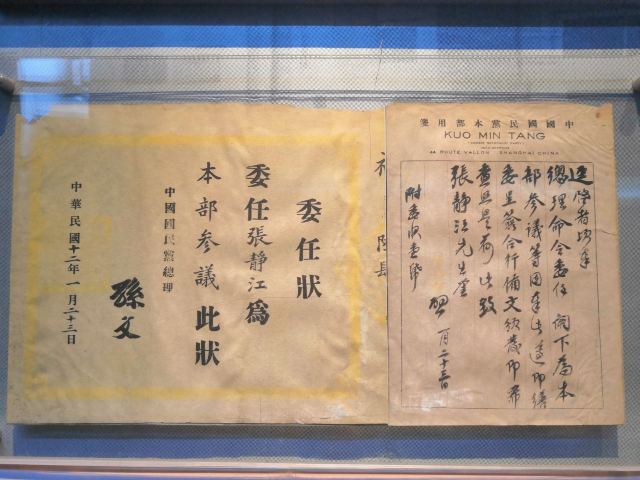 中國國民黨本部用箋
KUO MIN TANG
44 ROUTE VALLON SHANGHAI CHINA
逕啓者頃奉
總理命令委任 閣下為本
部參議等因奉此遵即繕
委呈簽合行備文頒發即希
查照是荷此致
張靜江先生
附委狀壹紙
一月二十三日
委任狀
委任張靜江為
本部參議此狀
中國國民黨總理
孫文
中華民國十二年一月二十三日